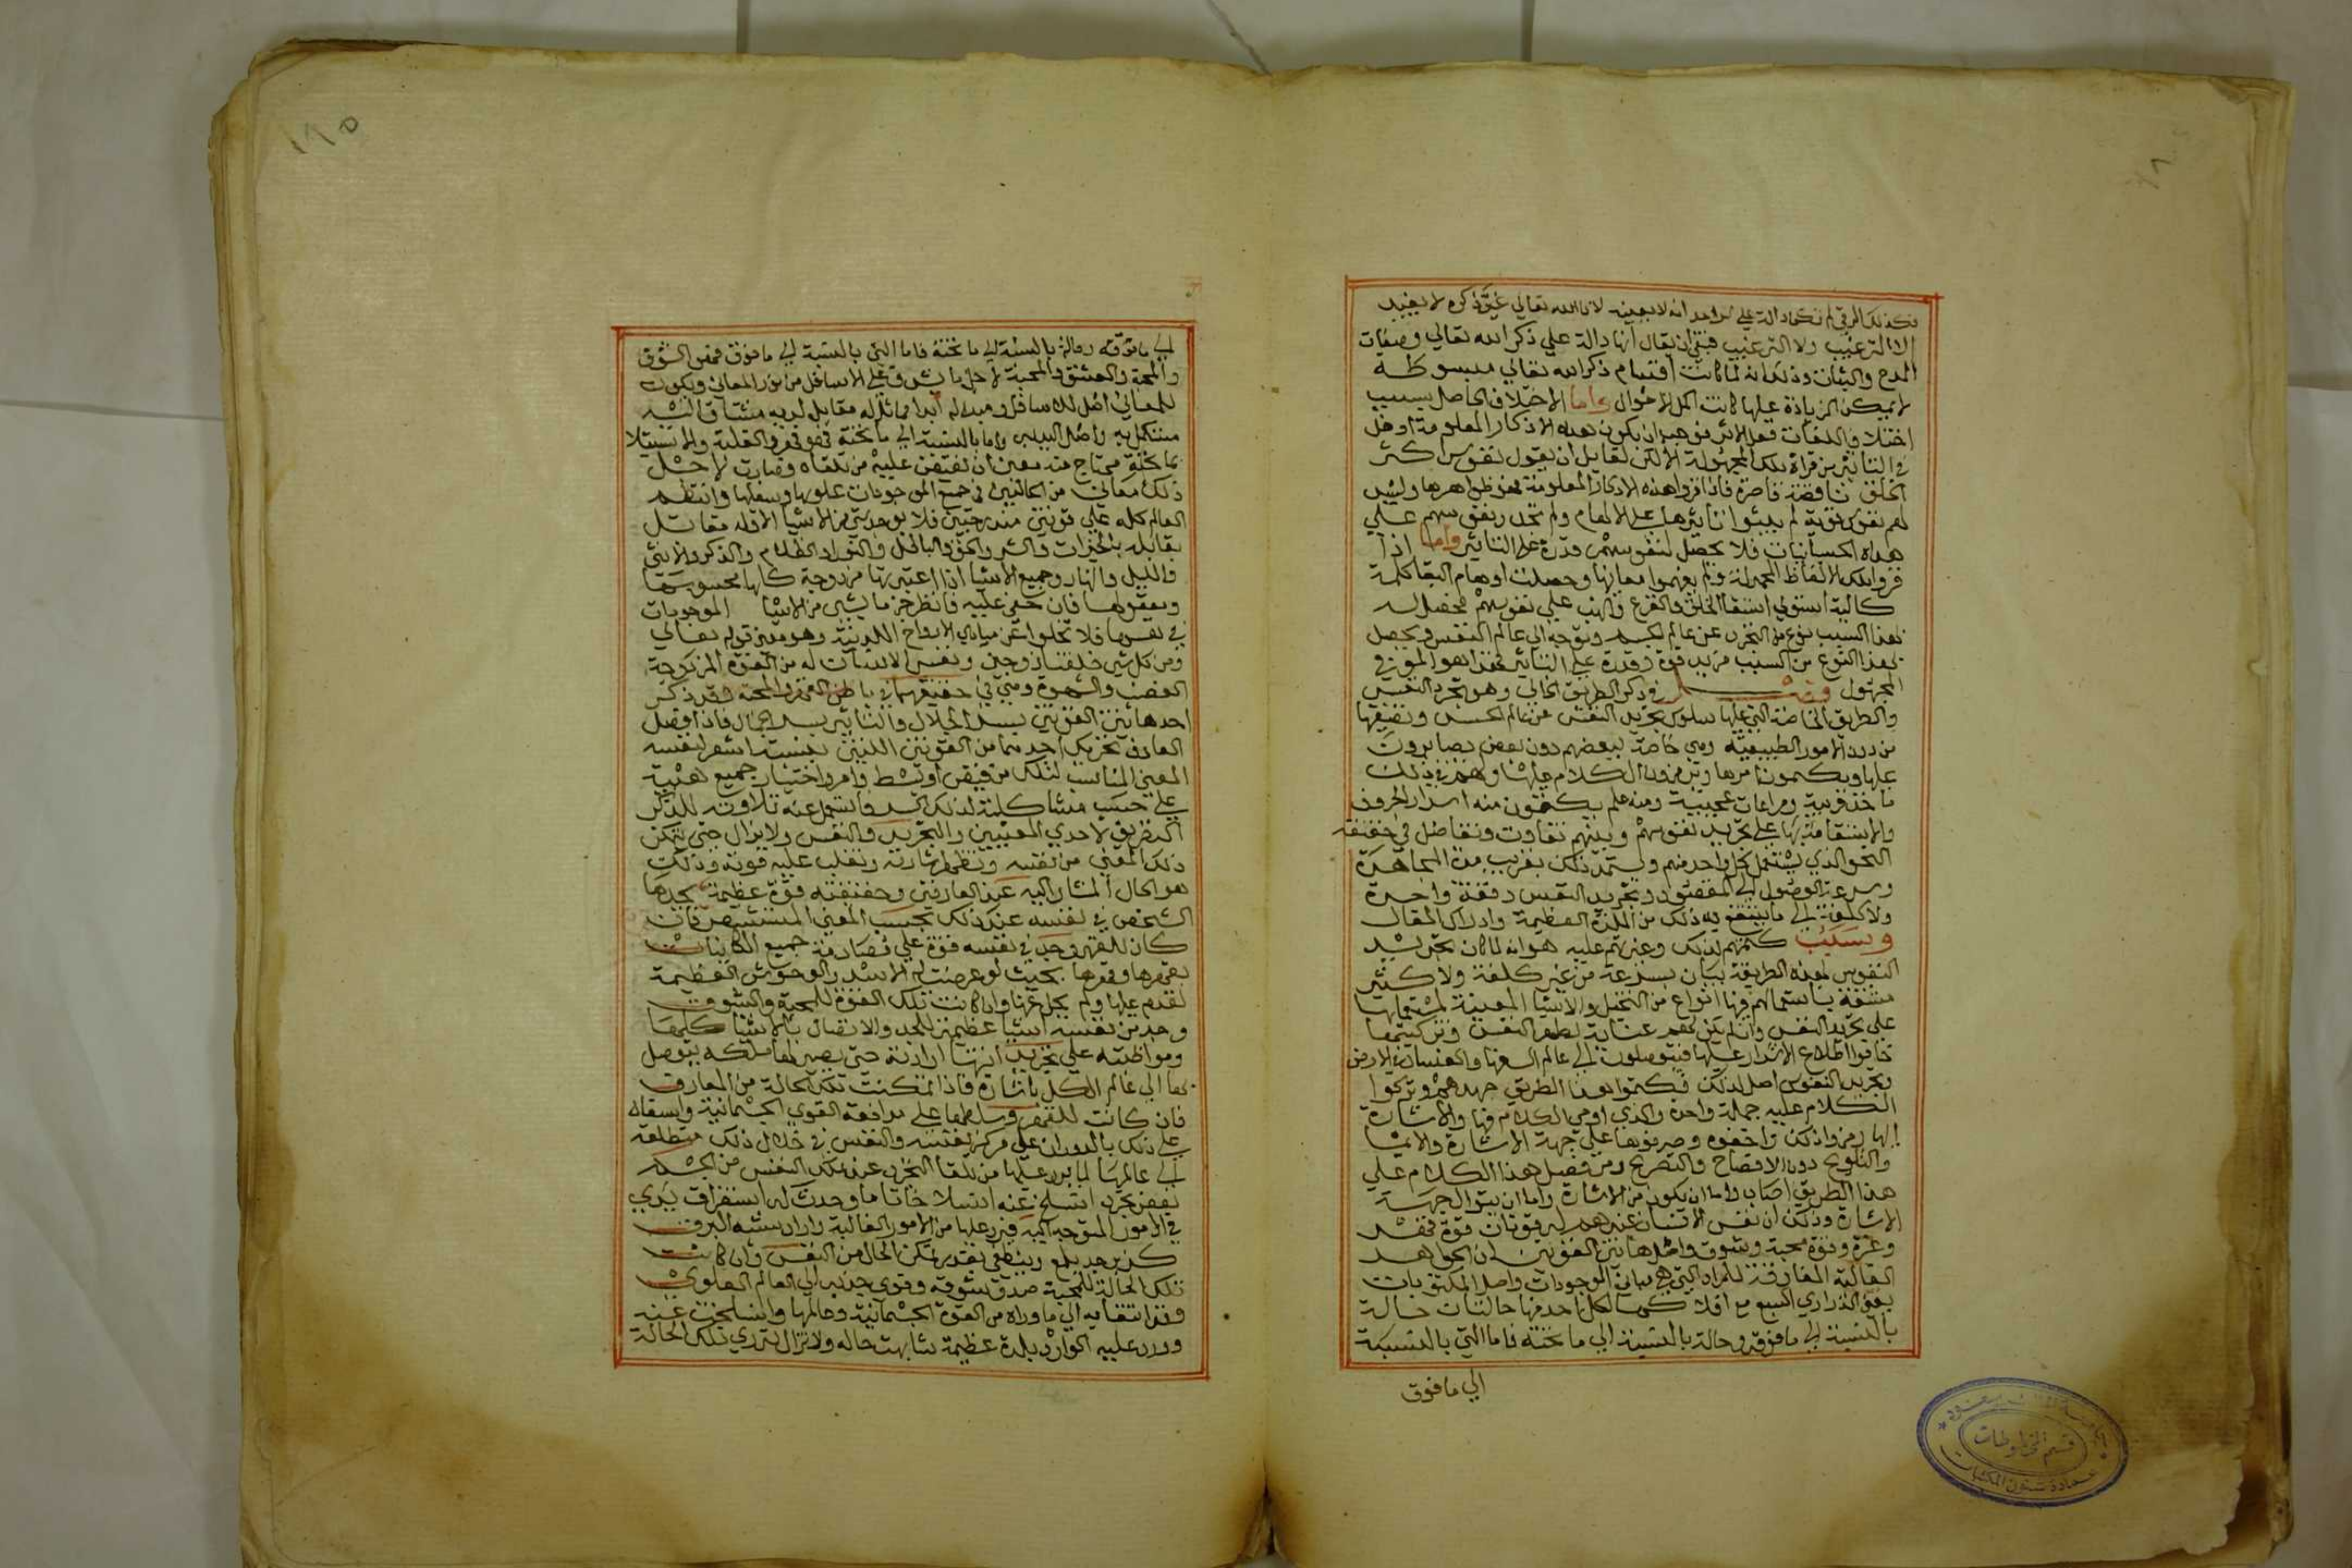 فكذلك الرقي لم تكن دالة على واحد انه لا بعينه لان الله تعالى غني ذكره لا يفيد
الا الترغيب ولا الترغيب فبقي ان يقال انها دالة على ذكر الله تعالى وصفات
المدح والثبات وذلك انه لما كانت اقسام ذكر الله تعالى مبسوطة
لا يمكن الزيادة عليها كانت اكمل الاحوال واما الاختلاف الحاصل بسبب
اختلاف اللغات فعل الاثر فوجب ان يكون هذه الاذكار المعلومة ادخل
في التاثير من قراة تلك المجهولة الا لكن لقايل ان يقول نفوس اكثر
الخلق ناقصة قاصرة فاذا قروا هذه الاذكار المعلومة فهوا ظواهرها وليس
لهم نفوس قوية لم يبنوا تاثيرها على الالهام ولم تجرد نفوسهم على
هذه الحسانيات فلا يحصل لنفوسهم قدرة على التاثير واما اذا
قروا تلك الالفاظ المجهولة ولم يفهموا معانيها وحصلت اوهام انها كلمة
كالية استولى الخلق والفزع والهيب على نفوسهم فحصل له
بهذا السبب نوع من التجرد عن عالم الجسد وتوجه الى عالم النفس ويحصل
بهذا النوع من السبب مزيد قوة وقدرة على التاثير فهذا هو الموثر في
المجهول فصل في ذكر الطريق الخالي وهو تجرد النفس
والطريق الخاصة التي عليها سلوك تجريد النفس من عالم الجسد وتصفيتها
من درن الامور الطبيعية وهي خاصة لبعضهم دون بعض يصابرون
عليها ويكتمون امرها ويرمزون الكلام عليها ولهم في ذلك
ماخذ قريبة ومراعات عجيبة ومنه علم يكفون منه اسرار الحروف
والاستقامة بها على تجريد نفوسهم وبينهم تفاوت وتفاضل في حقيقة
النحو الذي يشتمل كل واحد منهم ويستمد ذلك بقريب مدة المجاهدة
وسرعة الوصول الى المقصود وتجريد النفس دفعة واحدة
ولا كلفة الى ما ينتفع به ذلك من اللذة العظيمة وادراك المقال
وسبب كتمهم لذلك وغيرتهم عليه هو انه لما كان تجريد
النفوس لهذه الطريقة يكون بسرعة من غير كلفة ولا كثير
مشقة باستعمالهم فيها انواع من التخيل والاشيا المعينة لمستعملها
على تجريد النفس وان لم يكن لهم عناية بطهر النفس وتزكيتها
خافوا اطلاع الاشرار عليها فيتوصلون الى عالم السفها والفساد في الارض
وتجريد النفوس اصل لذلك فكتموا هذا الطريق جهدهم وتركوا
الكلام عليه جملة واحدة والذي اومي الكلام فيها والاشارة
اليها رمزوا ذلك واخفوه وصرفوها على جهة الاشارة والايما
والتلويح دون الافصاح والتصريح ومن فصل هذا الكلام على
هذا الطريق اصاب لاما ان يكون من الاشارة واما ان يتوالى جهة
الاشارة وذلك ان نفس الانسان عندهم له قوتان قوة قهر
وعزة وقوة محبة وشوق واصل هاتين القوتين ان الجواهر
العالية المفارقة للمواد التي هي مبادي الموجودات واصل المكنونات
يعني الذراري السبع مع افلاكها لكل واحد منها حالتان حالة
بالنسبة الى ما فوقه وحالة بالنسبة الى ما تحته فاما التي بالنسبة
الى ما فوق
١٩٥
الى ما فوقه وحالة بالنسبة الى ما تحته فاما التي بالنسبة الى ما فوق فهي الشوق
والمحبة والعشق والمحبة لاجل ما يشرق على الاسافل من نور المعالي ويكون
للمعالي اصل للاسافل ومبدا له ابدا مماثل له مقابل لديه مشتاق اليه
مستكمل به واصل اليه واما بالنسبة الى ما تحته فهو قهر والغلبة والاستيلا
بما تحته محتاج منه معين ان يفيض عليه من تلقاه وصارت لاجل
ذلك معاني من الحالتين في جميع الموجودات علوها وسفلها وانتظم
العالم كله على قوتين مندرجتين فلا يوجد شي من الاشيا الا له مقابل
يقابله بالخيرات والشر والحق والباطل والنور والظلام والذكر والانثى
والليل والنهار وجميع الاشيا اذا اعتبرتها مزدوجة كلها محسوسها
ومعقولها فان خفي عليه فانظر جزما ليس من الاشيا الموجودات
في نفسها فلا تخلوا عن مبادي الازواج اللدينية وهو معنى قوله تعالى
ومن كل شي خلقنا زوجين ونفس الانسان له من القوة المزدوجة
الغضب والشهوة وهي في حقيقتها في باطن القهر والمحبة فقد ذكر
احد هاتين القوتين بيسد الجلال والثانية بيسد الجمال فاذا فصل
العارف تحريك احد منهما من القوتين اللتين بينته استشعر لنفسه
المعنى المناسب لتلك من قبض او بسط وامر واختيار جميع هيئة
على حسب مشاكلته لذلك الحد واشتمل عنه تلاوت للذكر
الطريق لاحدي المعنيين والتجريد والنفس ولا يزال حتى يتمكن
ذلك المعنى من نفسه وتظهر اشارته وتغلب عليه قوته وذلك
هو الحال المشار اليه عند العارفين وحقيقته قوة عظيمة يجدها
الشخص في نفسه عند ذلك بحسب المعنى المستشعر فان
كان للقهر وجد في نفسه قوة على مصادمة جميع الكاينات
بقهرها وقدرها بحيث لو عرضت له الاسد والوحوش العظيمة
لقدم عليها ولم يبال عنها وان كانت تلك القوة للمحبة والشوق
وجد من نفسه اشيا عظيمة للحد والاتصال بالاشيا كلها
ومواظبته على تجريد انها ارادية حتى يصير لها ملكة يتوصل
بها الى عالم الكل باشارة فاذا تمكنت تلك الحالة من المعارف
فان كانت للقهر وسلطها على مدافعة القوي الجسمانية وايسقاه
على ذلك بالدوران على مركز نفسه والنفس في خلال ذلك متطلعة
الى عالمها لما يرد عليها من تلقا التجرد عن تلك النفس من الجسد
بعض تجرد انسلخ عنه انسلاخا تاما وحدث له استغراق يبدي
في الامور المتوجه اليه فيرد عليها من الامور الغالية وارادت شبه البرق
كذبرجد يلمع وينطفي بقدر تمكن الحال من النفس وان كانت
تلك الحالة للمحبة صدق شوقه وقوي جذبه الى العالم العلوي
وقد التفا به الى ما وراه من القوة الجسمانية وعالمها وانسلخت عنه
وورد عليه الوارد بلذة عظيمة شابهت حاله ولا تزال تتردي تلك الحالة
قسم المخطوطات
عمادة شئون المكتبات